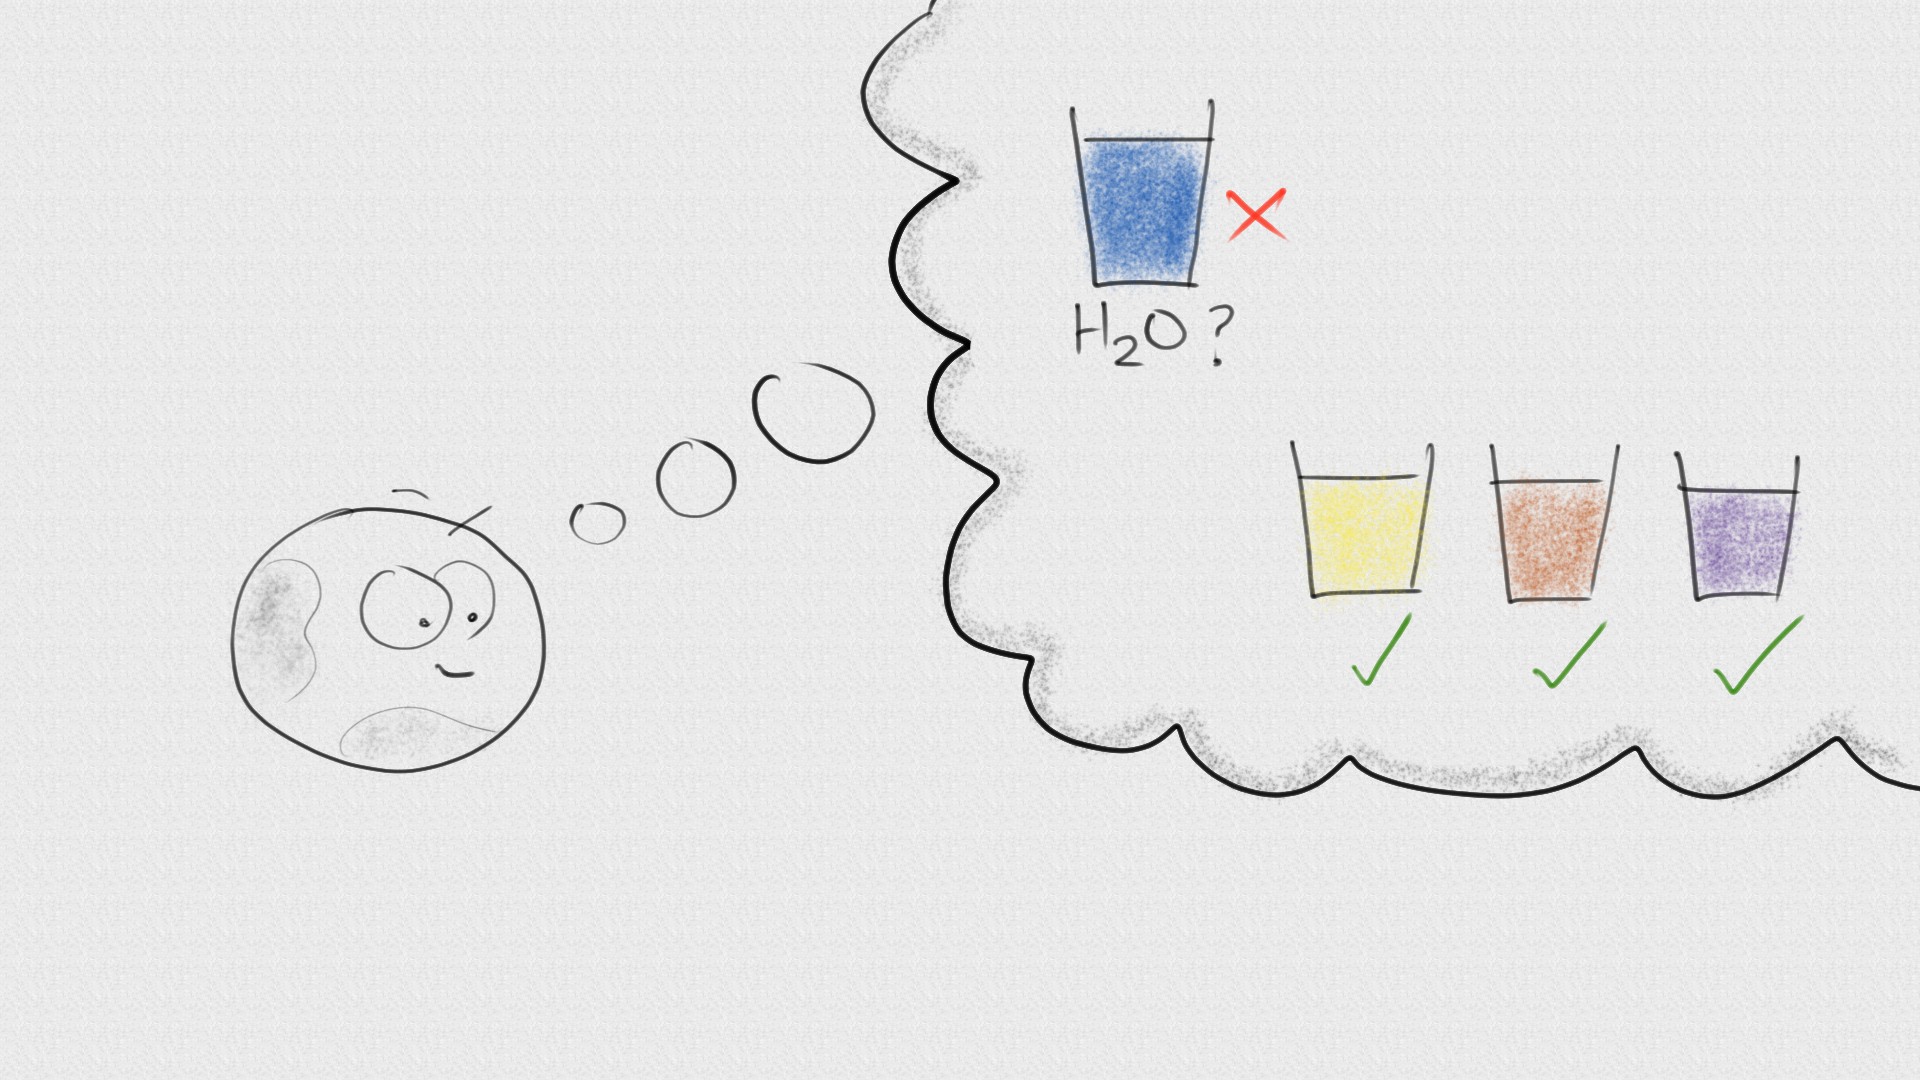 H₂O?